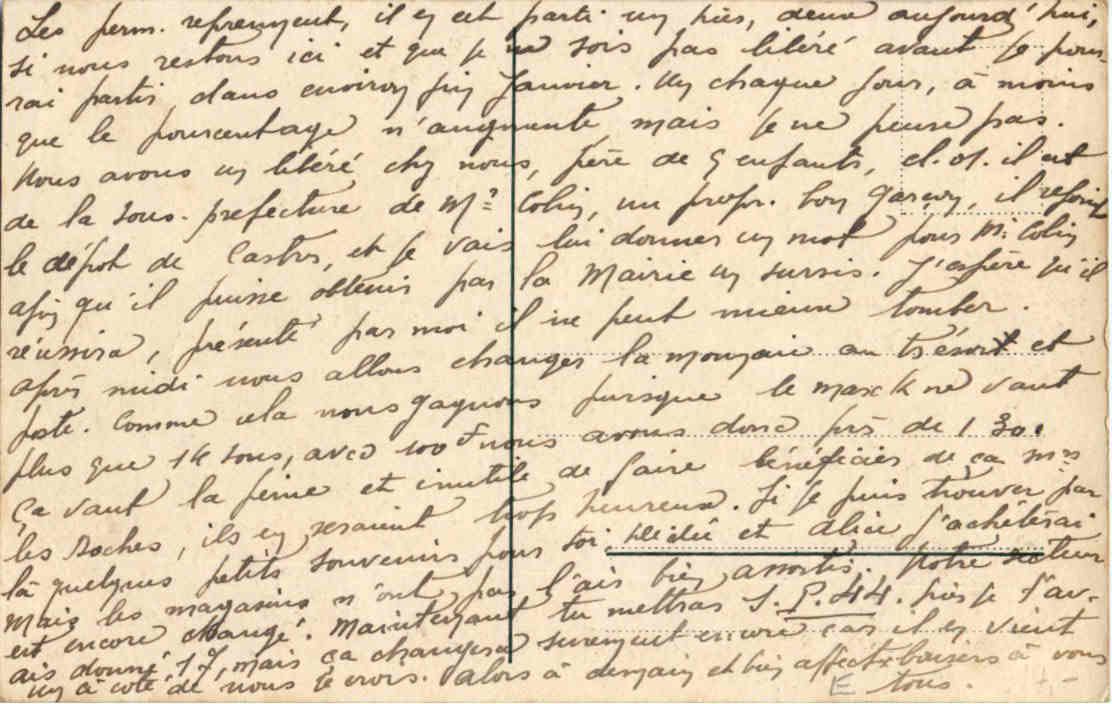 Les perm. reprennent, il en est parti un hier, deux aujourd'hui,
si nous restons ici et que je ne sois pas libéré avant je pour-
rai partir dans environ fin Janvier. Un chaque jour, à moins
que le pourcentage n'augmente, mais je ne pense pas.
Nous avons un libéré chez nous, père de 5 enfants, il est
de la sous-prefecture de Mr Colin, un propr. bon garçon, il rejoint
le dépôt de Castres, et je vais lui donner un mot pour Mr Colin
afin qu'il puisse obtenir par la Mairie un sursis. J'espère qu'il
réussira, présenté par moi il ne peut mieux tomber.
après midi nous allons changer la monnaie au trésor et
poste. Comme cela nous gagnons puisque le marck ne vaut
plus que 14 sous, avec 100 F nous avons donc près de 130.
Ça vaut la peine et inutile de faire bénéficier de ça mrs
les Boches, ils en seraient trop heureux. Si je puis trouver par
là quelques petits souvenirs pour toi, Dédée et Alice j'achèterai
Mais les magasins n'ont pas l'air bien assortis. Notre secteur
est encore changé. Maintenant tu mettras S.P.44. hier je t'av-
ais donné 17, mais ça changera surement encore car il en vient
un à coté de nous je crois. Alors à demain et bien affect. baisers à vous
E tous.